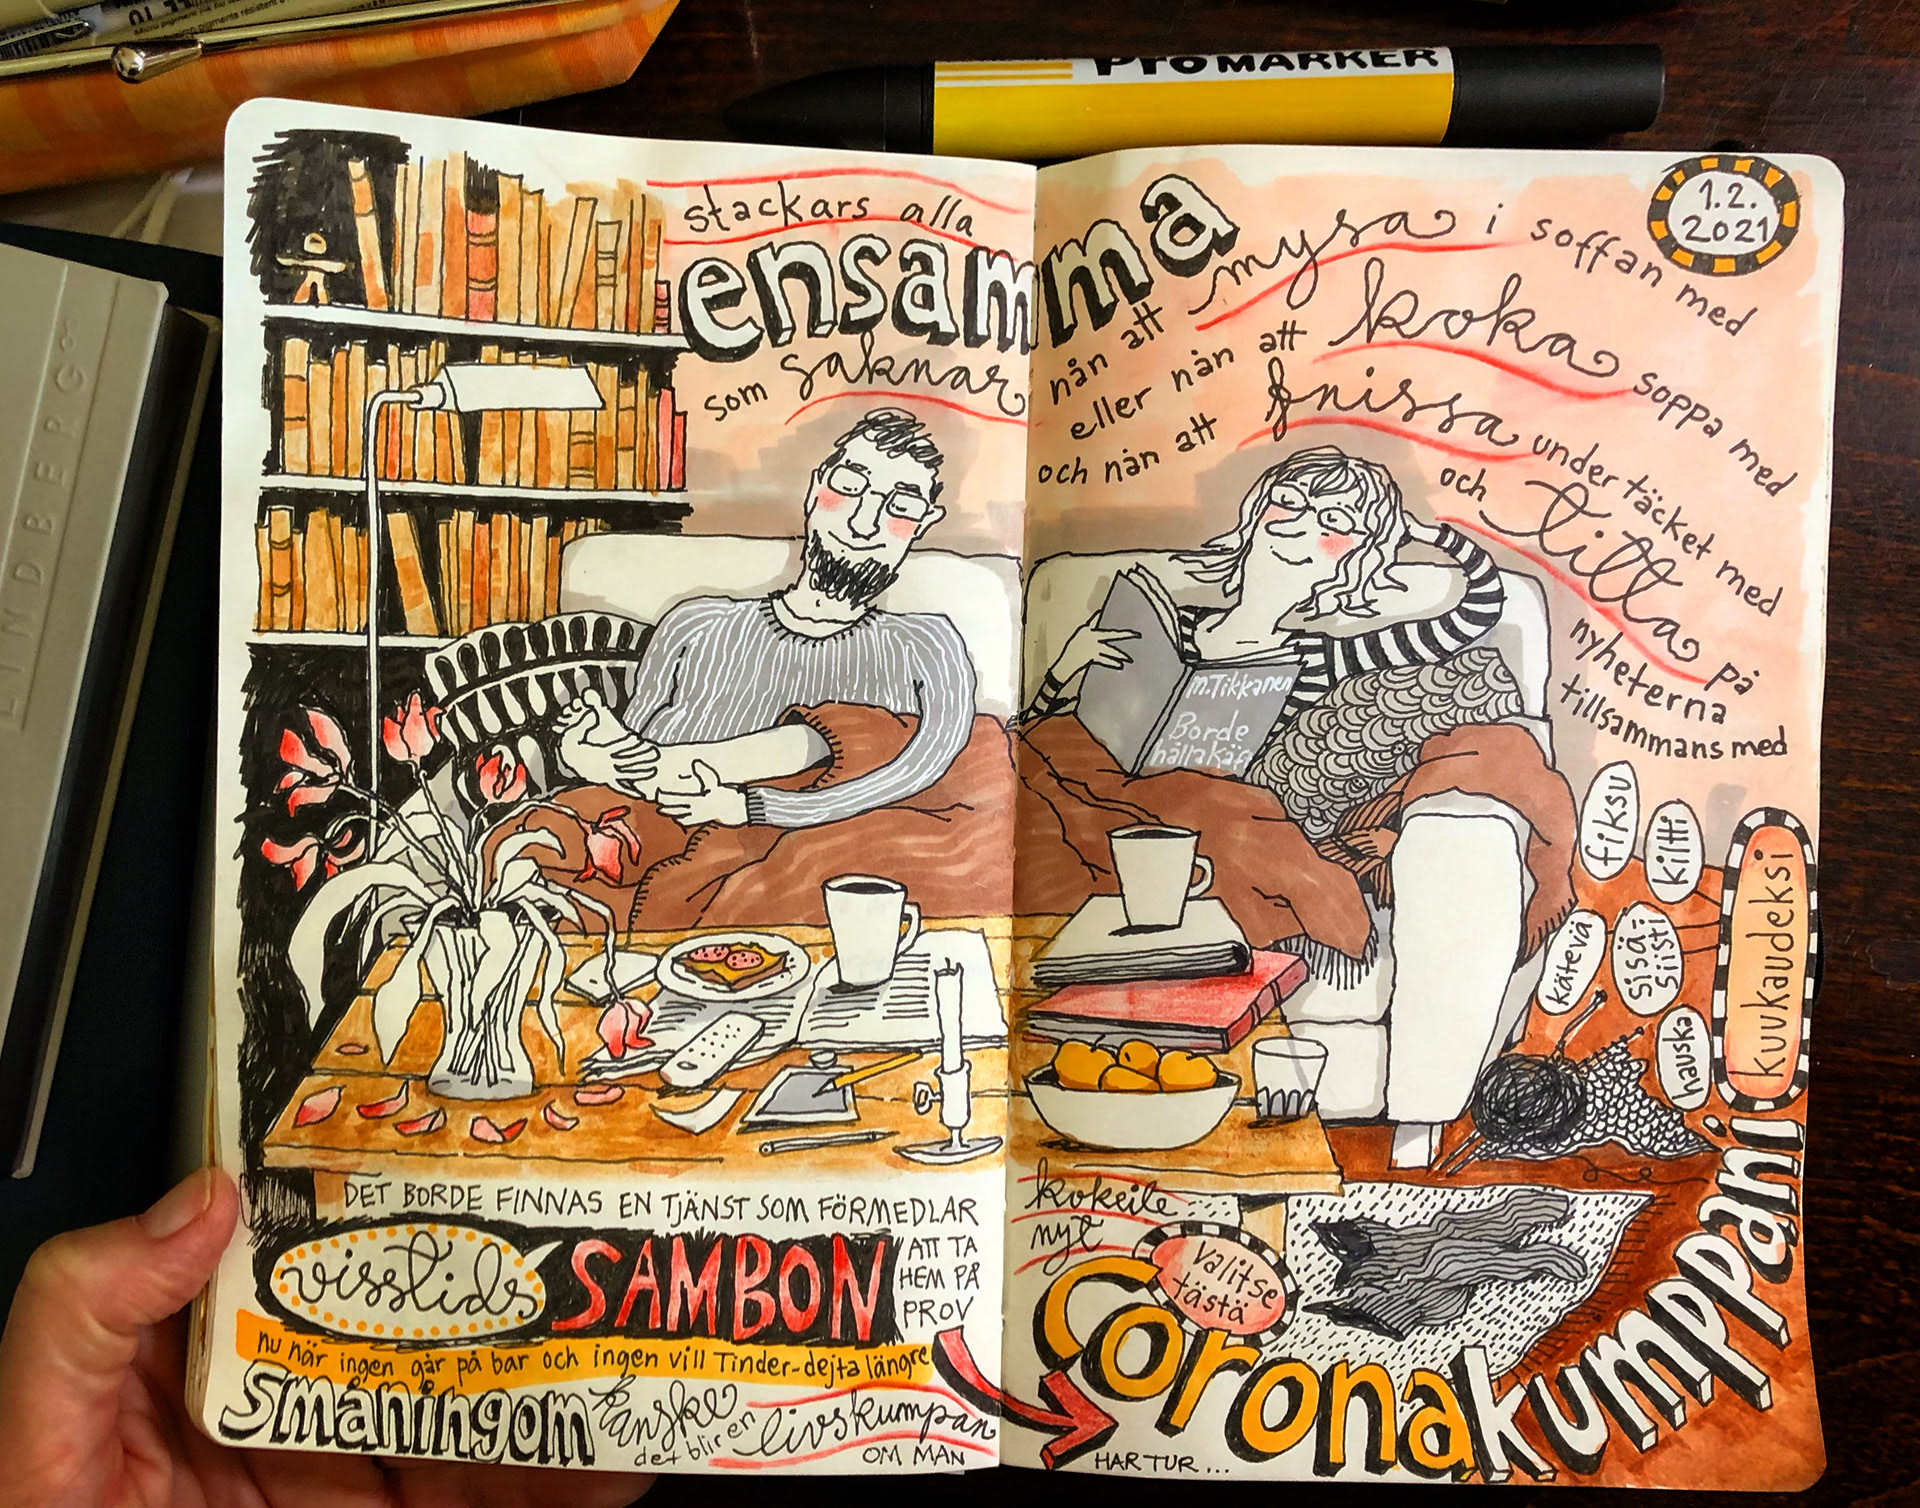 ProMARKER
LINDBERG
1.2.
2021
stackars alla
ensamma
som saknar
nån att mysa i soffan med
eller nån att koka soppa med
och nån att fnissa under täcket med
och titta på
nyheterna
tillsammans med
M.Tikkanen
Borde
hålla käft
fiksu
kiltti
kätevä
sisä-
siisti
hauska
kuukaudeksi
DET BORDE FINNAS EN TJÄNST SOM FÖRMEDLAR
visstids
SAMBON
ATT TA
HEM PÅ
PROV
nu när ingen går på bar och ingen vill Tinder-dejta längre
småningom kanske
det blir en livskumpan
OM MAN
HAR TUR...
kokeile
nyt
valitse
tästä
Coronakumppani